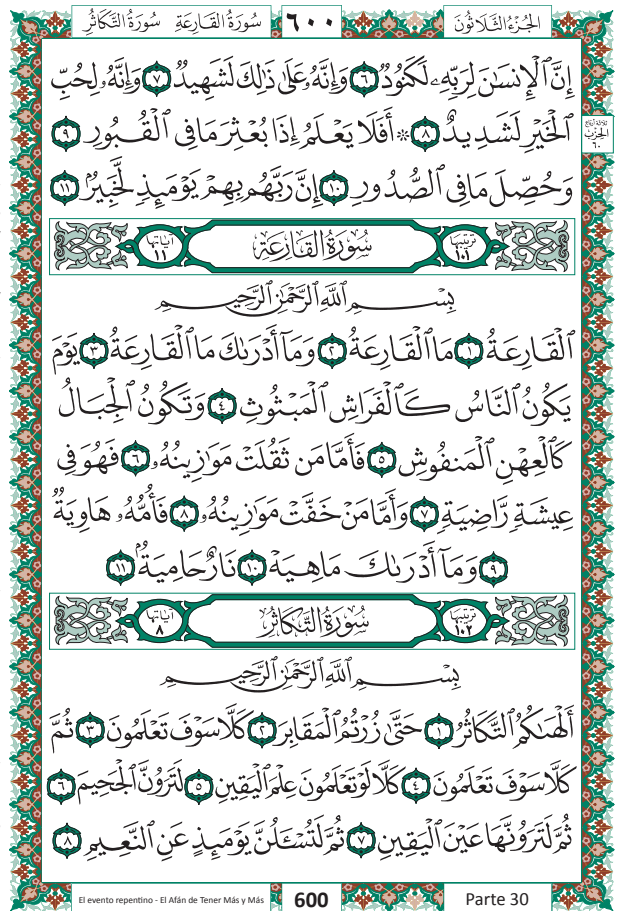 سُورَةُ القَارِعَةِ سُورَةُ التَّكَاثُرِ ٦٠٠ الجُزْءُ الثَّلَاثُونَ
إِنَّ ٱلْإِنسَٰنَ لِرَبِّهِۦ لَكَنُودٌ ٦ وَإِنَّهُۥ عَلَىٰ ذَٰلِكَ لَشَهِيدٌ ٧ وَإِنَّهُۥ لِحُبِّ
ٱلْخَيْرِ لَشَدِيدٌ ٨ ۞ أَفَلَا يَعْلَمُ إِذَا بُعْثِرَ مَا فِى ٱلْقُبُورِ ٩
ثلاثة أرباع
الحزب
٦٠
وَحُصِّلَ مَا فِى ٱلصُّدُورِ ١٠ إِنَّ رَبَّهُم بِهِمْ يَوْمَئِذٍ لَّخَبِيرٌۢ ١١
ترتيبها ١٠١ سُورَةُ القَارِعَةِ آياتها ١١
بِسْمِ ٱللَّهِ ٱلرَّحْمَٰنِ ٱلرَّحِيمِ
ٱلْقَارِعَةُ ١ مَا ٱلْقَارِعَةُ ٢ وَمَآ أَدْرَىٰكَ مَا ٱلْقَارِعَةُ ٣ يَوْمَ
يَكُونُ ٱلنَّاسُ كَٱلْفَرَاشِ ٱلْمَبْثُوثِ ٤ وَتَكُونُ ٱلْجِبَالُ
كَٱلْعِهْنِ ٱلْمَنفُوشِ ٥ فَأَمَّا مَن ثَقُلَتْ مَوَٰزِينُهُۥ ٦ فَهُوَ فِى
عِيشَةٍ رَّاضِيَةٍ ٧ وَأَمَّا مَنْ خَفَّتْ مَوَٰزِينُهُۥ ٨ فَأُمُّهُۥ هَاوِيَةٌ
٩ وَمَآ أَدْرَىٰكَ مَا هِيَهْ ١٠ نَارٌ حَامِيَةٌۢ ١١
ترتيبها ١٠٢ سُورَةُ التَّكَاثُرِ آياتها ٨
بِسْمِ ٱللَّهِ ٱلرَّحْمَٰنِ ٱلرَّحِيمِ
أَلْهَىٰكُمُ ٱلتَّكَاثُرُ ١ حَتَّىٰ زُرْتُمُ ٱلْمَقَابِرَ ٢ كَلَّا سَوْفَ تَعْلَمُونَ ٣ ثُمَّ
كَلَّا سَوْفَ تَعْلَمُونَ ٤ كَلَّا لَوْ تَعْلَمُونَ عِلْمَ ٱلْيَقِينِ ٥ لَتَرَوُنَّ ٱلْجَحِيمَ ٦
ثُمَّ لَتَرَوُنَّهَا عَيْنَ ٱلْيَقِينِ ٧ ثُمَّ لَتُسْـَٔلُنَّ يَوْمَئِذٍ عَنِ ٱلنَّعِيمِ ٨
El evento repentino - El Afán de Tener Más y Más 600 Parte 30